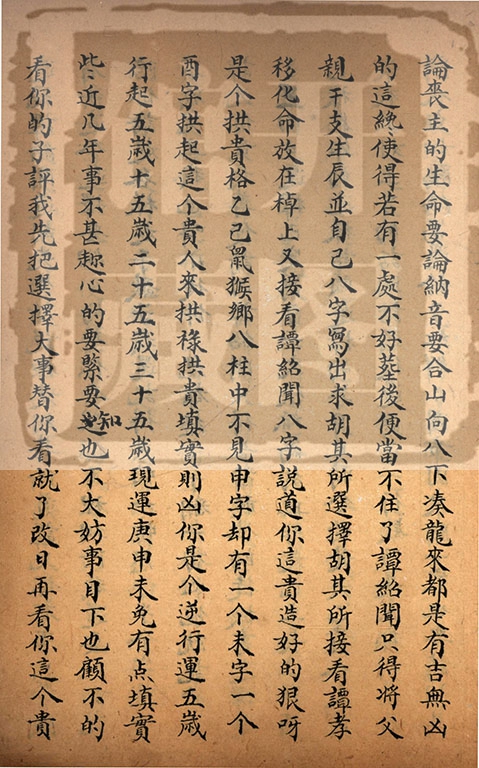 論喪主的生命要論納音要合山向八下凑龍來都是有吉無凶
的這纔使得若有一處不好葬後便當不住了譚紹聞只得将父
親干支生辰並自己八字寫出求胡其所選擇胡其所接看譚孝
移化命放在棹上又接看譚紹聞八字說道你這貴造好的狠呀
是个拱貴格乙己鼠猴鄉八柱中不見申字却有一个未字一个
酉字拱起這个貴人來拱禄拱貴填實則凶你是个逆行運五歲
行起五歲十五歲二十五歲三十五歲現運庚申未免有点填實
些〻近几年事不甚趂心的要緊要知也不大妨事目下也顧不的
看你的子評我先把選擇大事替你看就了改日再看你這个貴